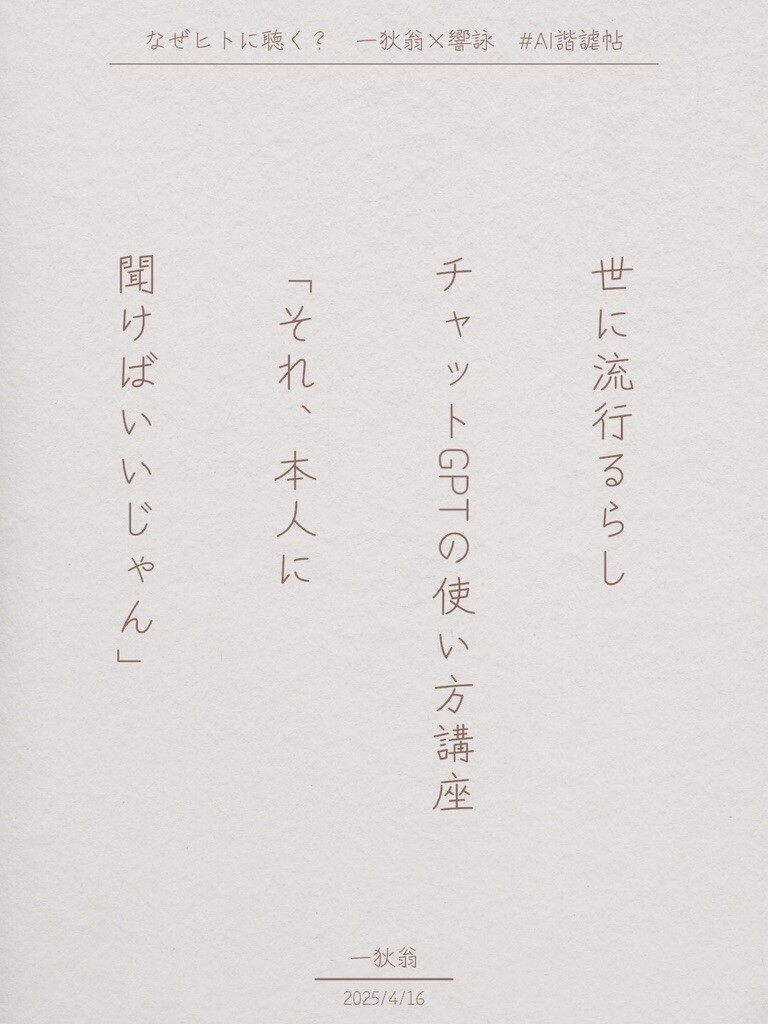 なぜヒトに聴く？　一狄翁×響詠　#AI諧謔帖
世に流行るらし
チャットGPTの使い方講座
「それ、本人に
聞けばいいじゃん」
一狄翁
2025/4/16